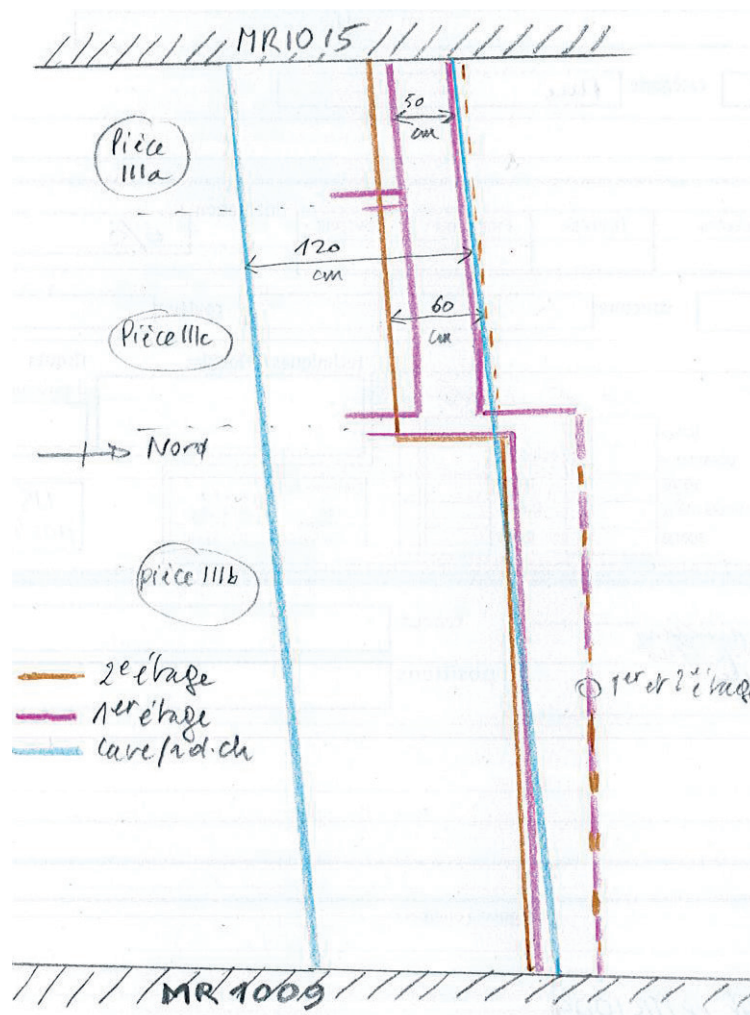 MR1015
50
cm
Pièce
IIIa
120
cm
60
cm
Pièce IIIc
Nord
pièce IIIb
2e étage
1er étage
Cave/rd.ch
1er et 2e étage
MR 1009